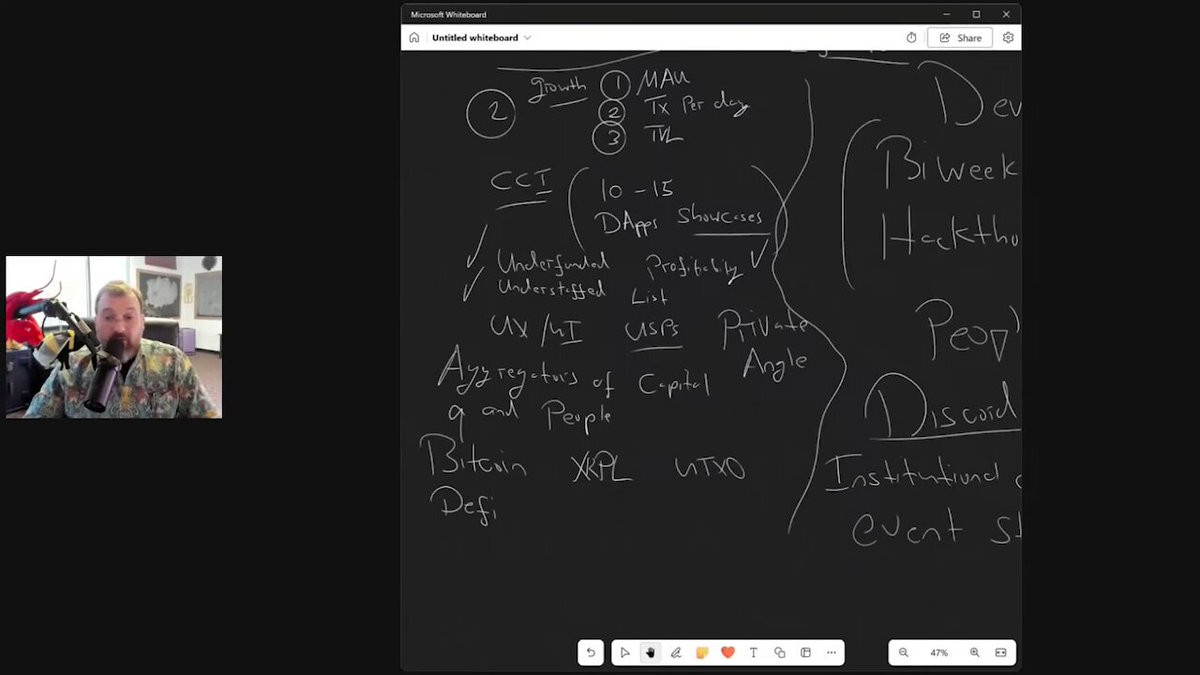 Microsoft Whiteboard
Untitled whiteboard
Share
2
Growth 1 MAU
2 Tx Per day
3 TVL
CCI
10 - 15
DApps Showcases
Underfunded Profitability
Understaffed List
UX/UI USPs Private
Angle
Aggregators of Capital
and People
Bitcoin XRPL UTXO
Defi
Dev
Biweek
Hacktho
Peop
Discord
Institutional
event st
47%